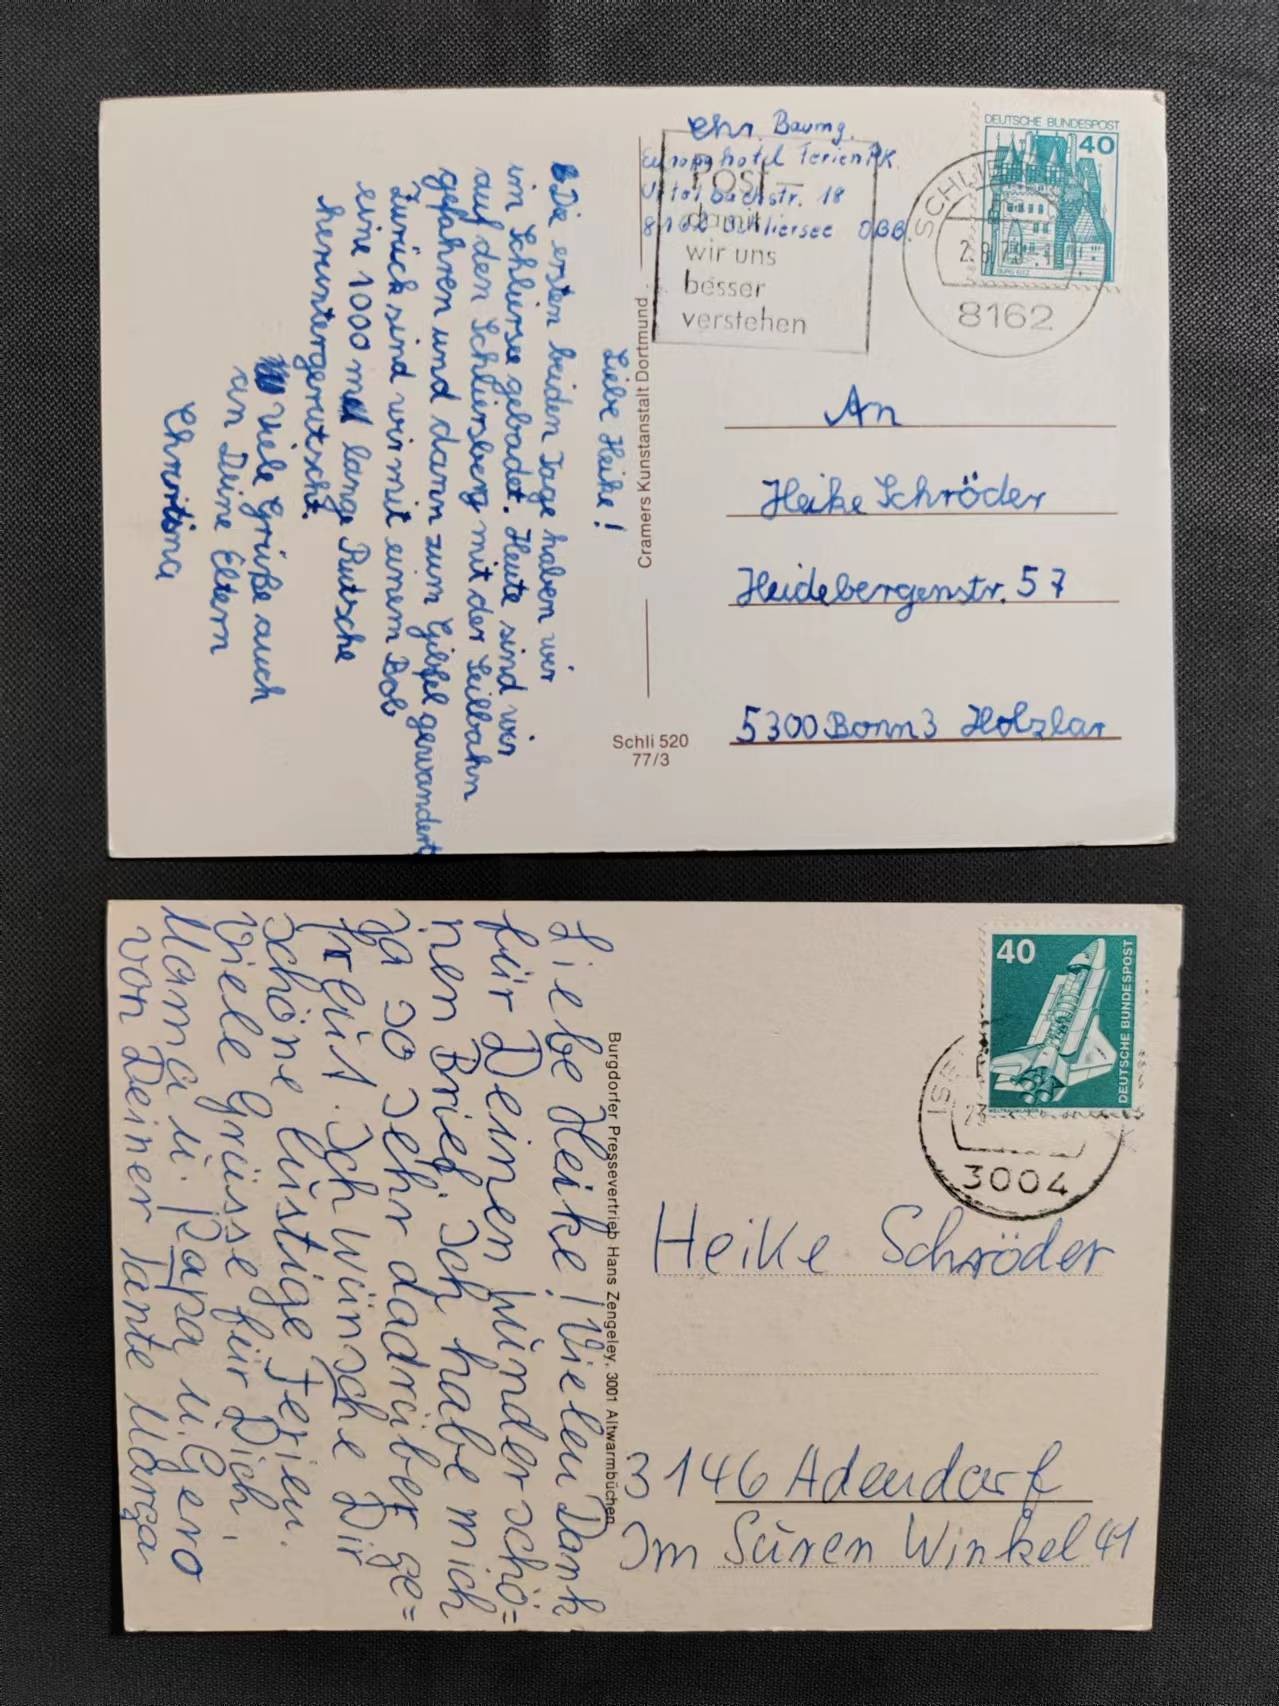 Chr. Baumg.
Europa hotel Ferien PK.
bachstr. 18
Schliersee OBB.
POST –
damit
wir uns
besser
verstehen
DEUTSCHE BUNDESPOST
40
BURG ELTZ
8162
Liebe Heike!
Die ersten beiden Tage haben wir
im Schliersee gebadet. Heute sind wir
auf den Schliersberg mit der Seilbahn
gefahren und dann zum Gibfel gewandert
Zurück sind wir mit einem Bob
eine 1000 m lange Rutsche
heruntergerutscht.
Viele Grüße auch
an Deine Eltern
Christina
Cramers Kunstanstalt Dortmund
Schli 520
77/3
An
Heike Schröder
Heidebergenstr. 57
5300 Bonn 3 Holzlar
40
DEUTSCHE BUNDESPOST
3004
Liebe Heike! Vielen Dank
für Deinen wunderschö=
nen Brief. Ich habe mich
ja so sehr dadrüber ge=
freut. Ich wünsche Dir
schöne lustige Ferien.
Viele Grüsse für Dich,
Mama u. Papa u. Gero
von Deiner Tante Marga
Burgdorfer Pressevertrieb Hans Zengeley, 3001 Altwarmbüchen
Heike Schröder
3146 Adendorf
Im Suren Winkel 41